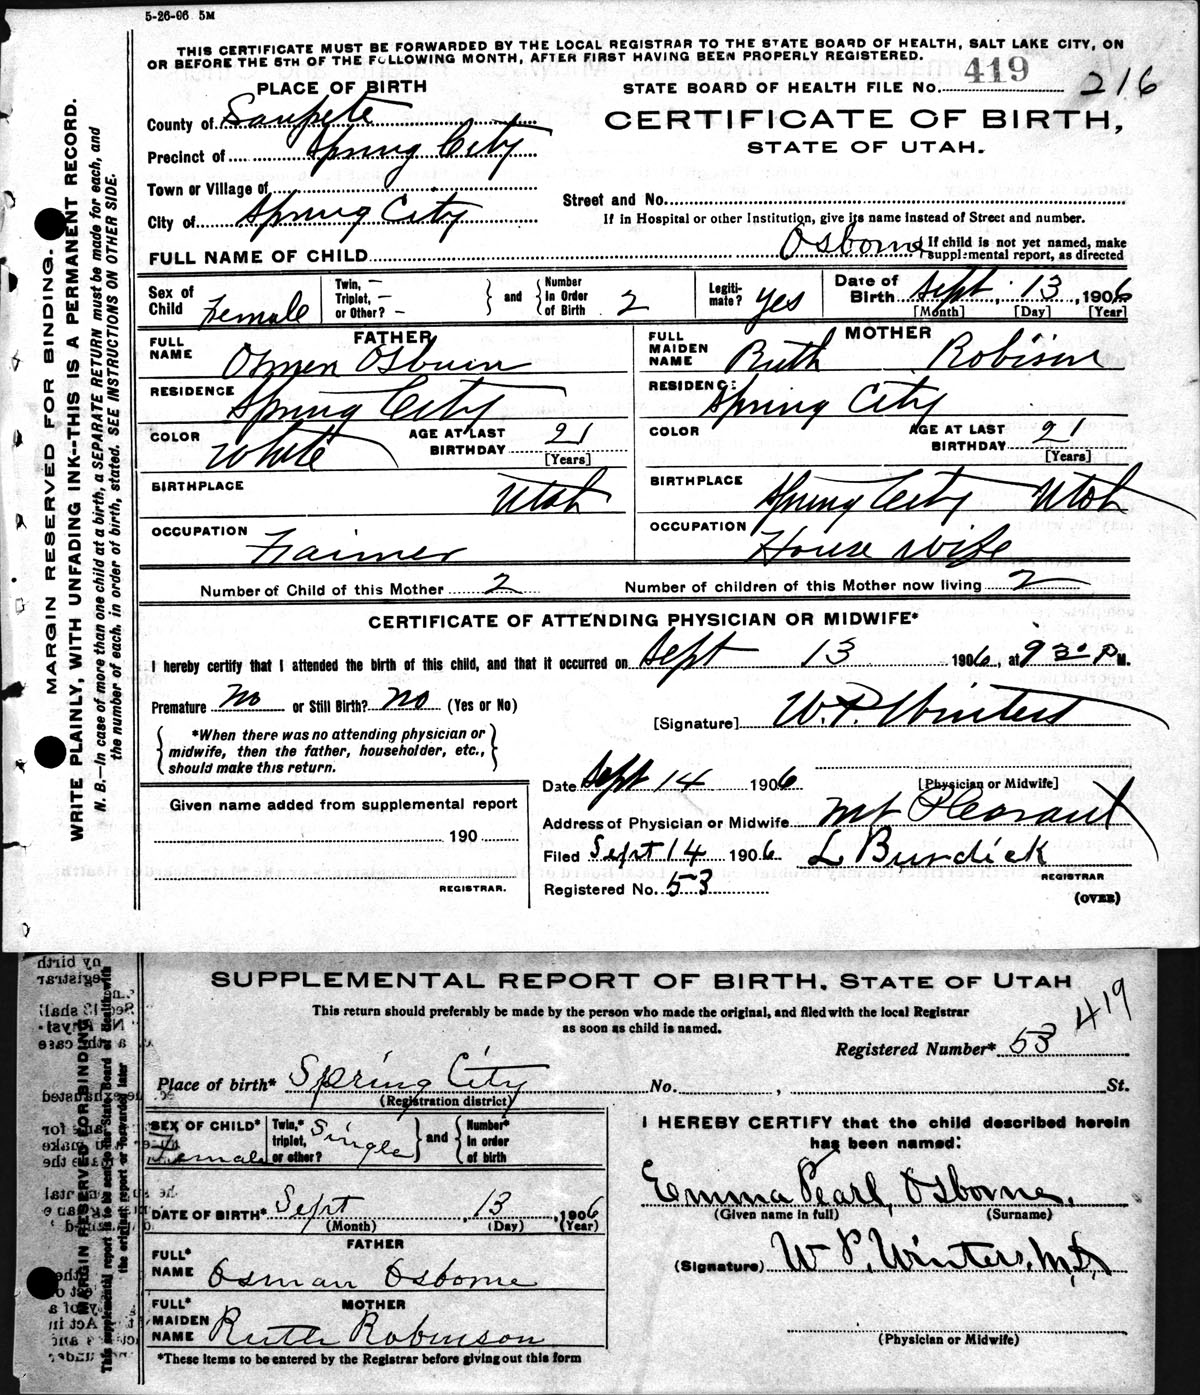 5-26-06 5M
THIS CERTIFICATE MUST BE FORWARDED BY THE LOCAL REGISTRAR TO THE STATE BOARD OF HEALTH, SALT LAKE CITY, ON
OR BEFORE THE 5TH OF THE FOLLOWING MONTH, AFTER FIRST HAVING BEEN PROPERLY REGISTERED.
PLACE OF BIRTH
STATE BOARD OF HEALTH FILE No. 419 216
County of Sanpete
CERTIFICATE OF BIRTH,
Precinct of Spring City
STATE OF UTAH.
Town or Village of
Street and No.
City of Spring City
If in Hospital or other Institution, give its name instead of Street and number.
FULL NAME OF CHILD Osborne
If child is not yet named, make
supplemental report, as directed
Sex of Child Female
Twin, —
Triplet, —
or Other? —
and
Number in Order of Birth 2
Legitimate? yes
Date of Birth Sept. 13, 1906
[Month] [Day] [Year]
FATHER
FULL NAME Osmen Osburn
MOTHER
FULL MAIDEN NAME Ruth Robison
RESIDENCE Spring City
RESIDENCE: Spring City
COLOR White
AGE AT LAST BIRTHDAY 21
[Years]
COLOR
AGE AT LAST BIRTHDAY 21
[Years]
BIRTHPLACE Utah
BIRTHPLACE Spring City Utah
OCCUPATION Farmer
OCCUPATION House wife
Number of Child of this Mother 2
Number of children of this Mother now living 2
CERTIFICATE OF ATTENDING PHYSICIAN OR MIDWIFE*
I hereby certify that I attended the birth of this child, and that it occurred on Sept 13 1906, at 9 30 P M.
Premature no or Still Birth? no (Yes or No)
[Signature] W. P. Winters
*When there was no attending physician or
midwife, then the father, householder, etc.,
should make this return.
Date Sept 14 1906
[Physician or Midwife]
Given name added from supplemental report
Address of Physician or Midwife Mt Pleasant
190
Filed Sept 14 1906 L Burdick
REGISTRAR.
REGISTRAR
Registered No. 53
(OVER)
MARGIN RESERVED FOR BINDING.
WRITE PLAINLY, WITH UNFADING INK--THIS IS A PERMANENT RECORD.
N. B.—In case of more than one child at a birth, a SEPARATE RETURN must be made for each, and
the number of each, in order of birth, stated. SEE INSTRUCTIONS ON OTHER SIDE.
SUPPLEMENTAL REPORT OF BIRTH, STATE OF UTAH
This return should preferably be made by the person who made the original, and filed with the local Registrar
as soon as child is named.
419
Registered Number* 53
Place of birth* Spring City No. , St.
(Registration district)
SEX OF CHILD* Female
Twin,* triplet, or other? Single
and
Number* in order of birth
I HEREBY CERTIFY that the child described herein
has been named:
Emma Pearl, Osborne.
(Given name in full) (Surname)
DATE OF BIRTH* Sept, 13, 1906
(Month) (Day) (Year)
FATHER
FULL* NAME Osman Osborne
(Signature) W P. Winters, M.D.
MOTHER
FULL* MAIDEN NAME Ruth Robinson
(Physician or Midwife)
*These items to be entered by the Registrar before giving out this form
MARGIN RESERVED FOR BINDING
This supplemental report is to be sent to the State Board of Health with
the original report or forwarded later